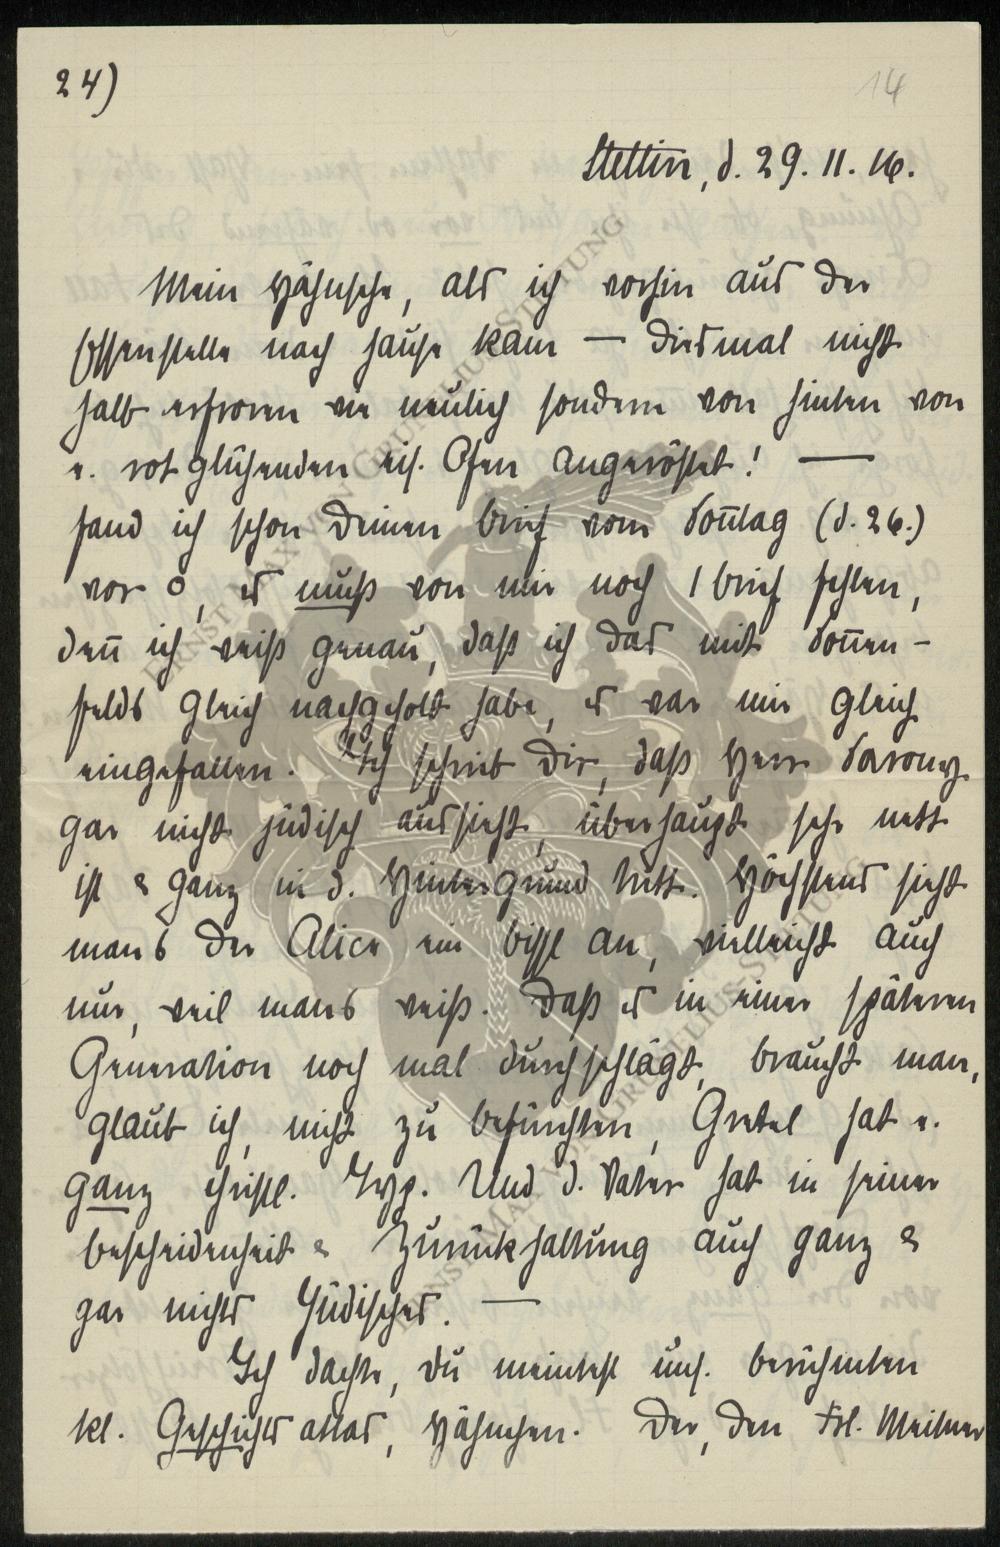 24)
14
Stettin, d. 29. 11. 16.
Mein Hähnsche, als ich vorhin aus der
Ossenstelle nach Hause kam — diesmal nicht
halb erfroren wie neulich sondern von hinten von
e. rot glühenden eis. Ofen angeröstet! —
fand ich schon Deinen Brief vom Son̄tag (d. 26.)
vor o, es muß von mir noch 1 Brief fehlen,
den̄ ich weiß genau, daß ich das mit Son̄en-
felds gleich nachgeholt habe, es war mir gleich
eingefallen. Ich schrieb Dir, daß Herr
gar nicht jüdisch aussieht, überhaupt sehr nett
ist & ganz in d. Hintergrund tritt. Höchstens sieht
mans der Alice ein bissl an, vielleicht auch
nur, weil mans weiß. Daß es in einer späteren
Generation noch mal durchschlägt, braucht man,
glaub ich, nicht zu befürchten, Gretel hat e.
ganz christl. Typ. Und d. Vater hat in seiner
Bescheidenheit & Zurückhaltung auch ganz &
gar nichts Jüdisches. —
Ich dachte, Du meintest uns. berühmten
kl. Geschichtsatlas, Hähnchen. Der, den Frl. Meitner
ERNST MAX VON GRUNELIUS-STIFTUNG
ERNST MAX VON GRUNELIUS-STIFTUNG